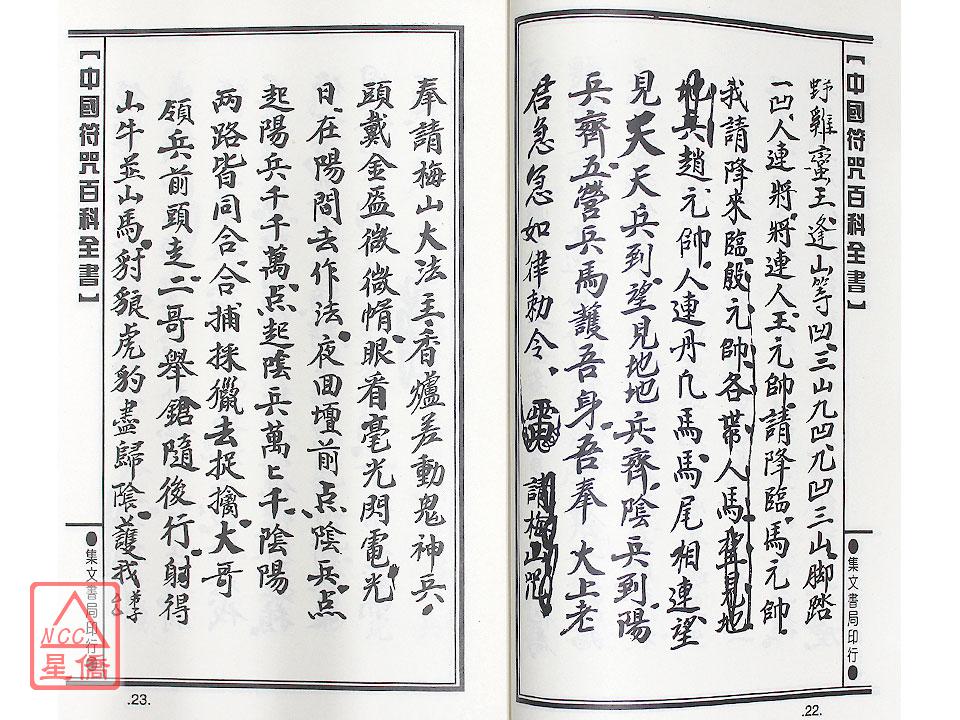 【中國符咒百科全書】
野雞蠻王逢山等凹、三山九凹、九凹三山、脚踏
一凹、人連將、將連人、王元帥、請降臨、馬元帥、
我請降來臨、殷元帥、各帶人馬、
兵、趙元帥、人連丹几馬、馬尾相連、望
見天天兵到、望見地地兵齊、陰兵到陽
兵齊、五營兵馬護吾身、吾奉太上老
君急急如律勅令、
請梅山咒
●集文書局印行●
.22.
【中國符咒百科全書】
奉請梅山大法主、香爐差動鬼神兵、
頭戴金盔微微悄、眼看毫光閃電光
日、在陽間去作法、夜回壇前点陰兵、点
起陽兵千千萬、点起陰兵萬匕千、陰陽
两路皆同合、合捕採獵去捉擒、大哥
領兵前頭走、二哥舉鎗隨後行、射得
山牛並山馬、豺狼虎豹盡歸陰、護我弟子
●集文書局印行●
.23.
NCC
星僑